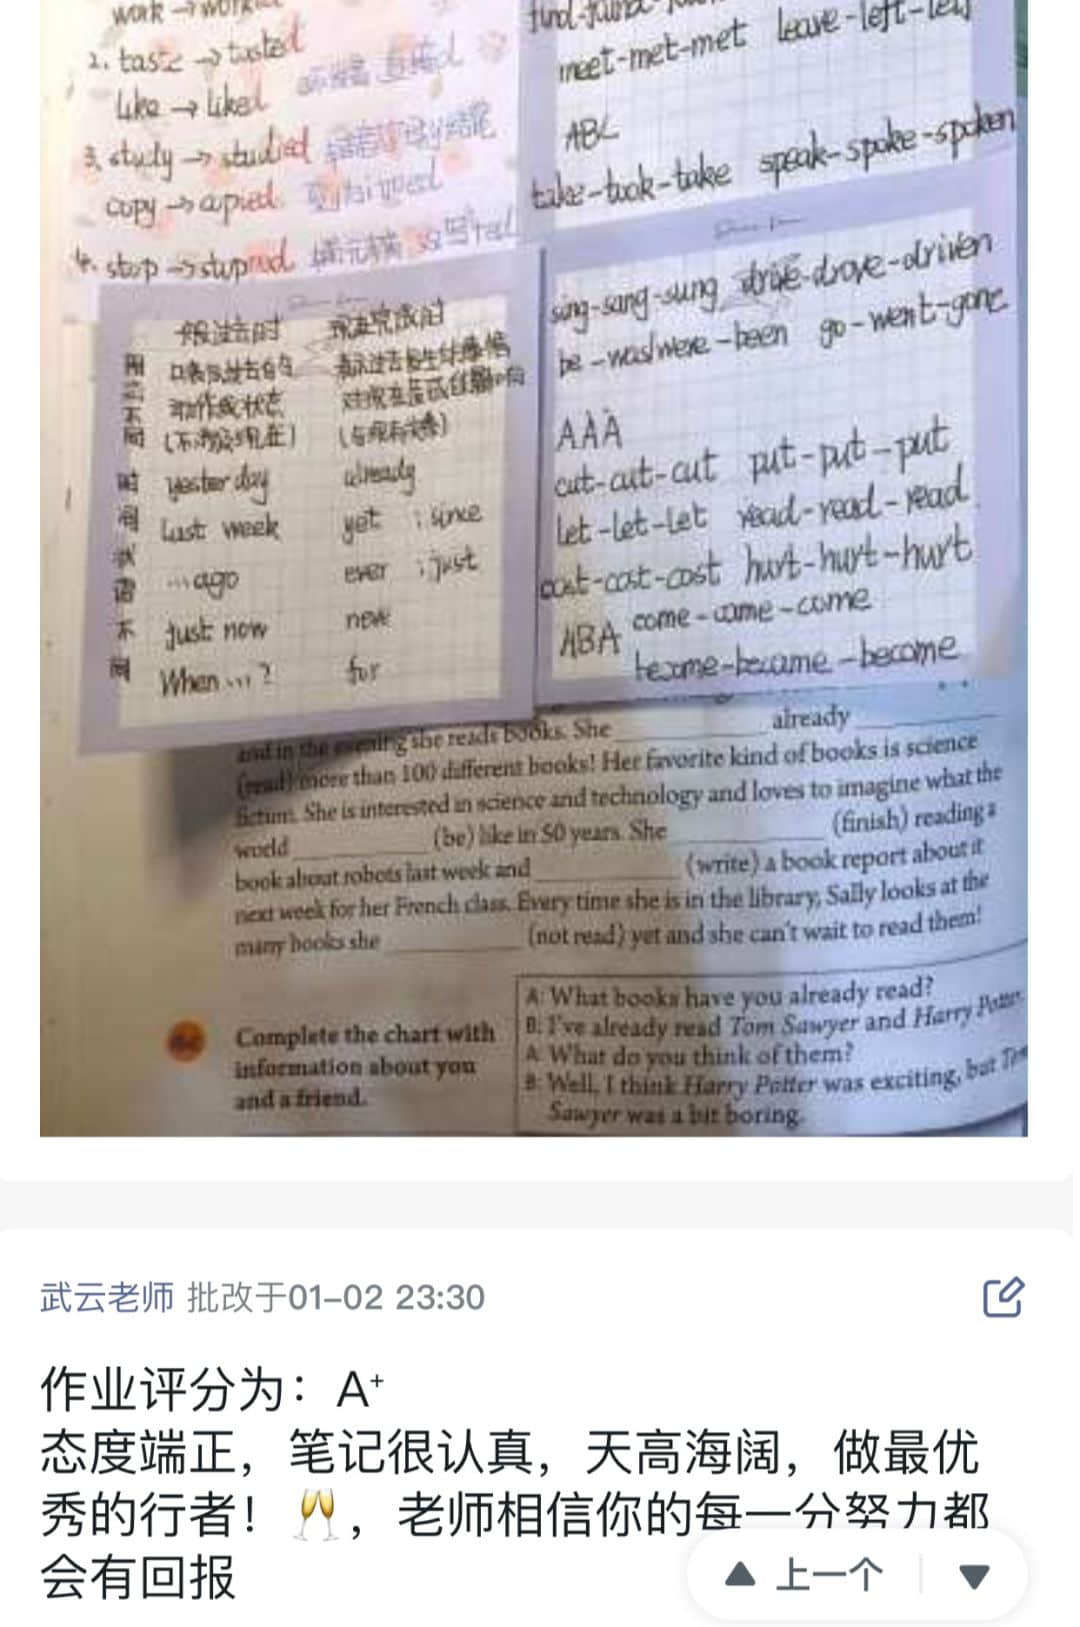 work →
2. taste → tasted
like → liked
3. study → studied
copy → copied
4. stop →
meet-met-met leave-left-left
ABC
take-took-take speak-spoke-spoken
sing-sang-sung drive-drove-driven
be-was/were-been go-went-gone
AAA
cut-cut-cut put-put-put
let-let-let read-read-read
cost-cost-cost hurt-hurt-hurt
ABA come-came-come
become-became-become
一般过去时 现在完成时
(不涉及现在)
yesterday already
last week yet ; since
...ago ever ; just
just now new
When...? for
时间状语不同
and in the evening she reads books. She already
(read) more than 100 different books! Her favorite kind of books is science
fiction. She is interested in science and technology and loves to imagine what the
world (be) like in 50 years. She (finish) reading a
book about robots last week and (write) a book report about it
next week for her French class. Every time she is in the library, Sally looks at the
many books she (not read) yet and she can't wait to read them!
Complete the chart with
information about you
and a friend.
A: What books have you already read?
B: I've already read Tom Sawyer and Harry Potter.
A: What do you think of them?
B: Well, I think Harry Potter was exciting, but Tom
Sawyer was a bit boring.
武云老师 批改于01-02 23:30
作业评分为：A⁺
态度端正，笔记很认真，天高海阔，做最优
秀的行者！🥂，老师相信你的每一分努力都
会有回报
上一个